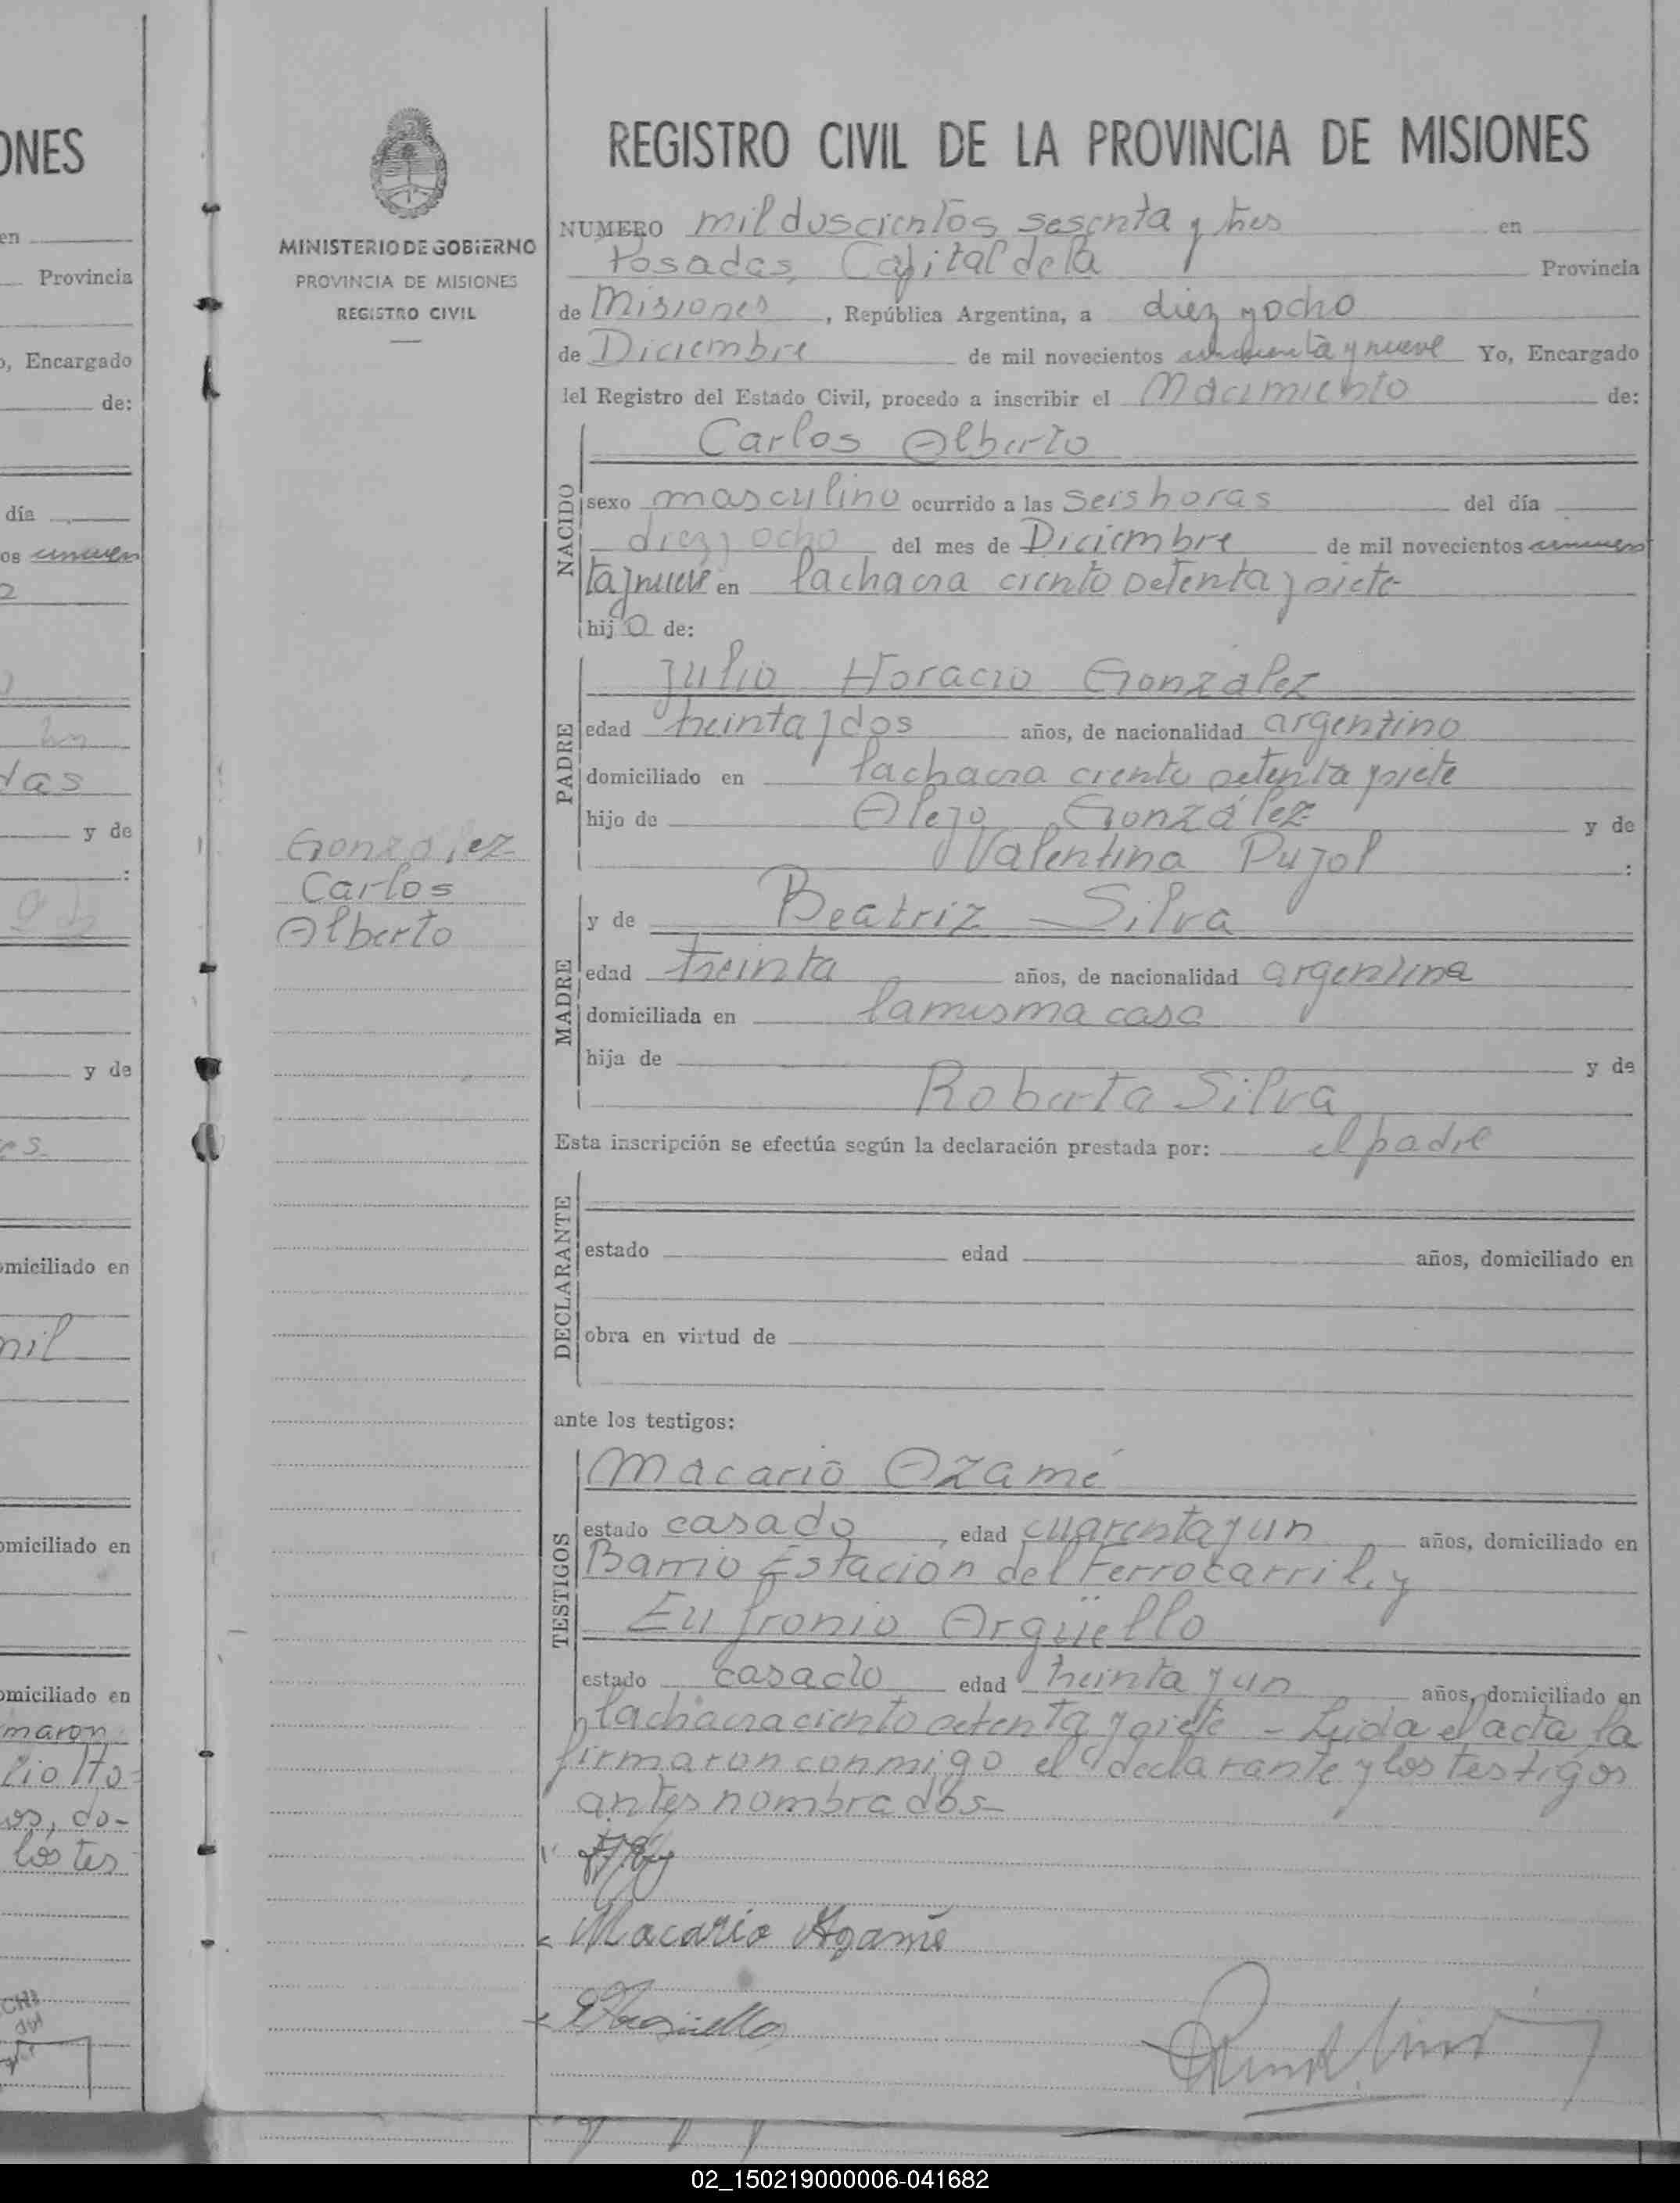 ONES
en
Provincia
o, Encargado
de:
día
os cincuen
das
y de
y de
es
omiciliado en
mil
omiciliado en
omiciliado en
maron
os, do-
los tes
MINISTERIO DE GOBIERNO
PROVINCIA DE MISIONES
REGISTRO CIVIL
Gonzalez
Carlos
Alberto
REGISTRO CIVIL DE LA PROVINCIA DE MISIONES
NUMERO mil duscientos sesenta y tres en
Posadas, Capital de la Provincia
de Misiones, República Argentina, a diez y ocho
de Diciembre de mil novecientos cincuenta y nueve Yo, Encargado
del Registro del Estado Civil, procedo a inscribir el Nacimiento de:
Carlos Alberto
NACIDO
sexo masculino ocurrido a las seis horas del día
diez y ocho del mes de Diciembre de mil novecientos cincuen
ta y nueve en la chacra ciento setenta y siete
hijo de:
PADRE
Julio Horacio González
edad treinta y dos años, de nacionalidad argentino
domiciliado en la chacra ciento setenta y siete
hijo de Alejo González y de
Valentina Pujol :
MADRE
y de Beatriz Silva
edad treinta años, de nacionalidad argentina
domiciliada en la misma casa
hija de y de
Roberta Silva
Esta inscripción se efectúa según la declaración prestada por: el padre
DECLARANTE
estado edad años, domiciliado en
obra en virtud de
ante los testigos:
TESTIGOS
Macario Azamé
estado casado, edad cuarenta y un años, domiciliado en
Barrio Estación del Ferrocarril, y
Eufronio Argüello
estado casado edad treinta y un años, domiciliado en
la chacra ciento setenta y siete - Leida el acta, la
firmaron conmigo el declarante y los testigos
antes nombrados-
Macario Azamé
EArguello
02_150219000006-041682